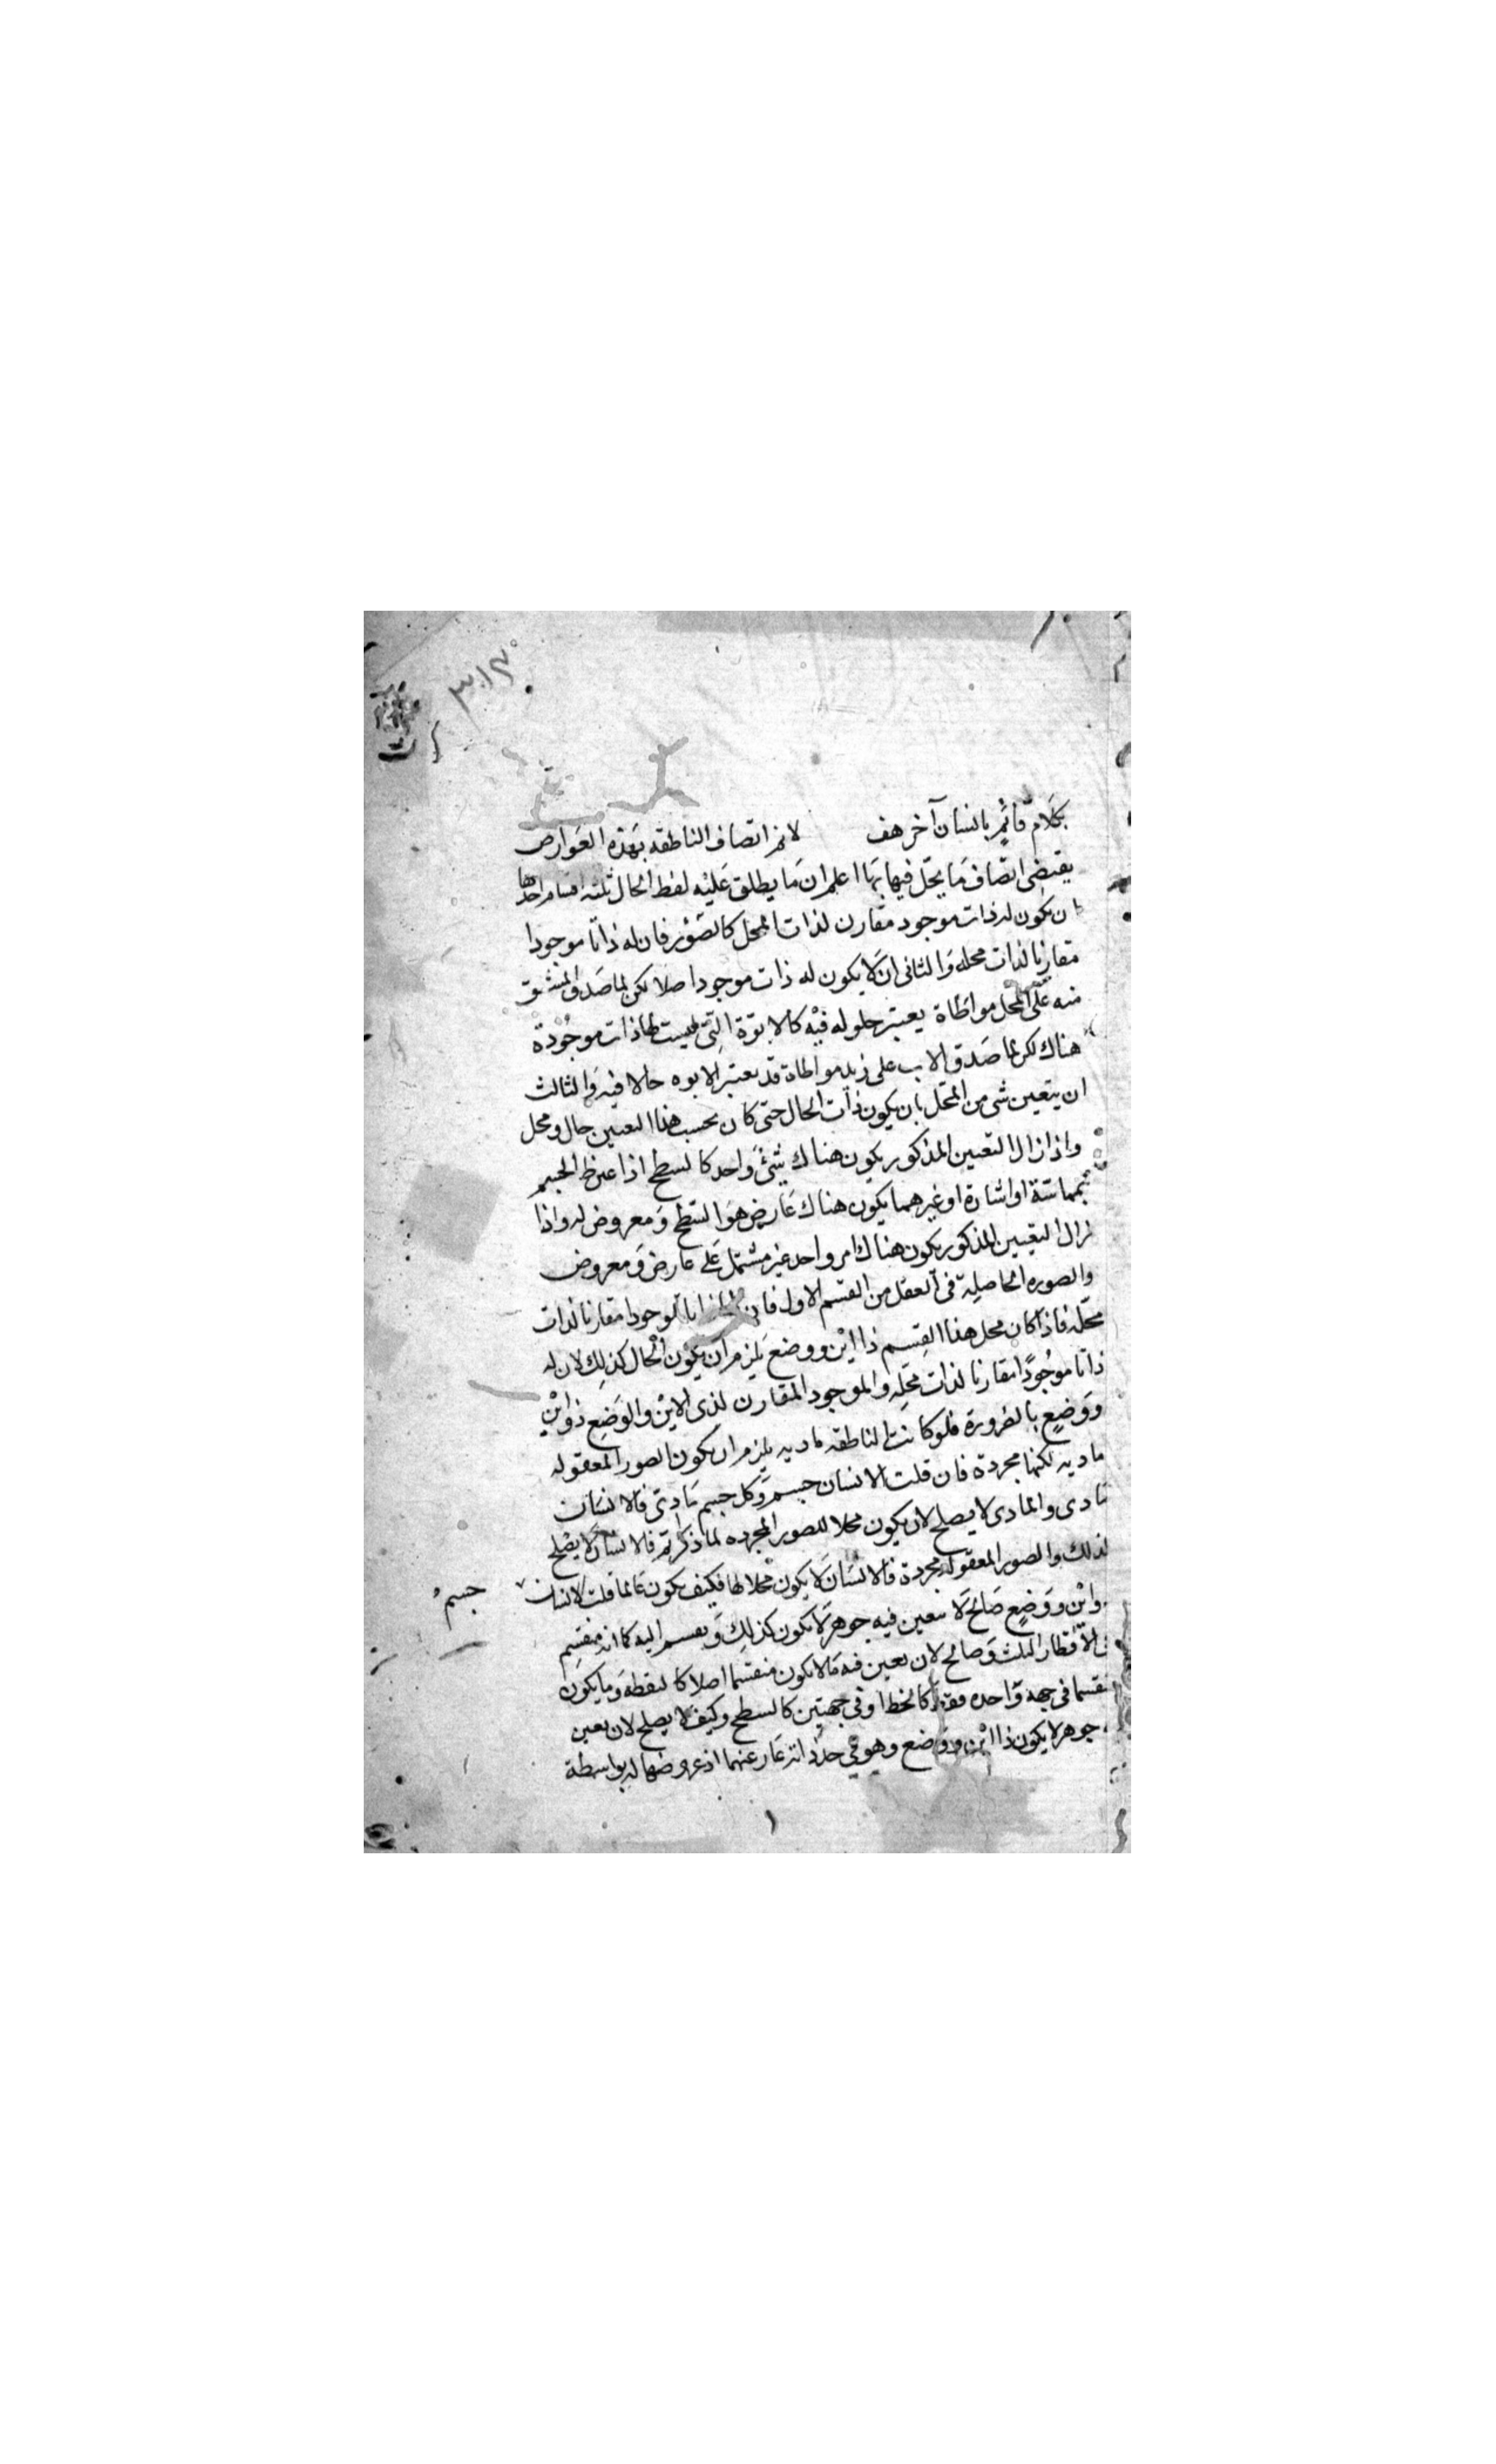 ٣٠١٣
بكلام قائم بانسان آخر هف لانم اتصاف الناطقه بهذه العوارض
يقتضى اتصاف ما يحل فيها بها اعلم ان ما يطلق عليه لفظ الحال ثلثه اقسام احدها
ان يكون له ذات موجود مقارن لذات المحل كالصور فان له ذاتا موجودا
مقارنا لذات محله والثانى ان لا يكون له ذات موجود اصلا لكن لما صدق المشتق
منه على المحل مواطاة يعتبر حلوله فيه كالابوة التى ليست لها ذات موجودة
هناك لكن لما صدق الاب على زيد مواطاة قد يعتبر الابوه حالا فيه والثالث
ان يتعين شى من المحل بان يكون ذات الحال حتى كان بحسب هذا التعين حال ومحل
واذا زال التعين المذكور يكون هناك شئ واحد كالسطح اذا عرض للجسم
بمماسة او اشارة او غيرهما يكون هناك عارض هو السطح ومعروض له واذا
زال التعيين المذكور يكون هناك امر واحد غير مشتمل على عارض ومعروض
والصوره الحاصلة فى العقل من القسم الاول فان لها ذاتا موجودا مقارنا لذات
محله فاذا كان محل هذا القسم ذا اين ووضع يلزم ان يكون الحال كذلك لان له
ذاتا موجودا مقارنا لذات محله والموجود المقارن لذى الاين والوضع ذو اين
ووضع بالضرورة فلو كانت الناطقه ماديه يلزم ان يكون الصور المعقوله
ماديه لكنها مجردة فان قلت الانسان جسم وكل جسم مادى فالانسان
مادى والمادى لا يصلح لان يكون محلا للصور المجرده لما ذكرتم فالانسان لا يصلح
لذلك والصور المعقوله مجردة فالانسان لا يكون محلا لها فكيف يكون عالما قلت الانسان
جسم
واين ووضع صالح لا يتعين فيه جوهر لا يكون كذلك وينقسم اليه كما انه منقسم
الاقطار الثلث وصالح لان يعين فيه ما لا يكون منقسما اصلا كالنقطه وما يكون
منقسما فى جهه واحده فقط كالخط او فى جهتين كالسطح وكيف لا يصلح لان يعين
جوهر لا يكون ذا اين ووضع وهو فى حد ذاته عار عنهما اذ عروضهما له بواسطة